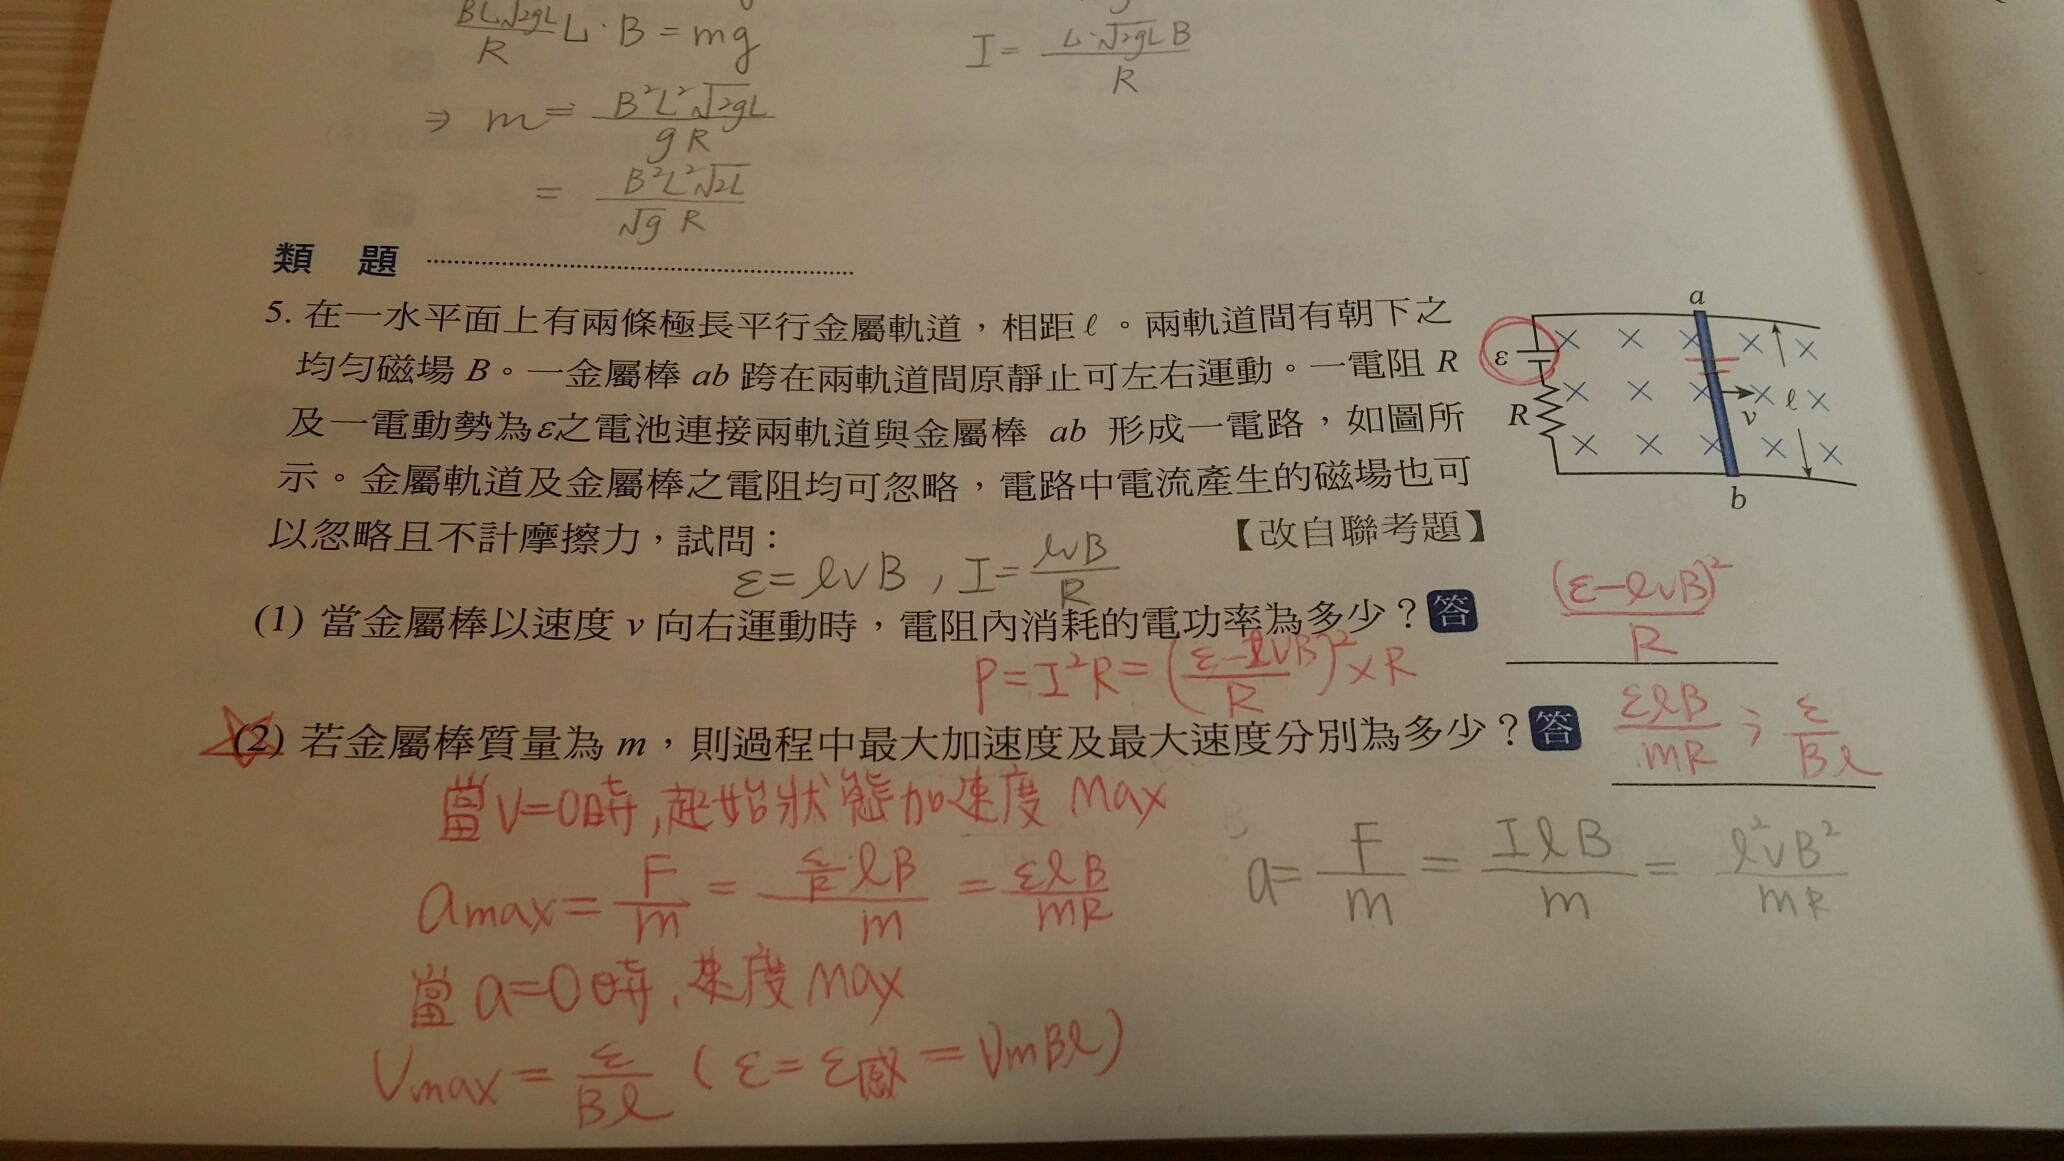 BL√2gL/R L·B=mg
I= L·√2gL B/R
⇒ m= B²L²√2gL/gR
= B²L²√2L/√g R
類 題
5. 在一水平面上有兩條極長平行金屬軌道，相距ℓ。兩軌道間有朝下之
均勻磁場 B。一金屬棒 ab 跨在兩軌道間原靜止可左右運動。一電阻 R
及一電動勢為ε之電池連接兩軌道與金屬棒 ab 形成一電路，如圖所
示。金屬軌道及金屬棒之電阻均可忽略，電路中電流產生的磁場也可
以忽略且不計摩擦力，試問：
【改自聯考題】
a
ε
R
v
ℓ
b
ε=ℓvB , I= ℓvB/R
(1) 當金屬棒以速度 v 向右運動時，電阻內消耗的電功率為多少？答
(ε-ℓvB)²/R
P=I²R=(ε-ℓvB/R)²×R
(2) 若金屬棒質量為 m，則過程中最大加速度及最大速度分別為多少？答
εℓB/mR ; ε/Bℓ
當v=0時,起始狀態加速度 Max
amax= F/m = ε/R·ℓB/m = εℓB/mR
a= F/m = IℓB/m = ℓ²vB²/mR
當 a=0時,速度 Max
Vmax= ε/Bℓ (ε=ε感=VmBℓ)